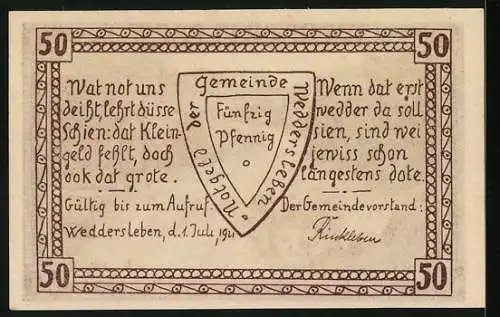 50
50
Wat not uns
deiht, lehrt düsse
Schien: dat Klein-
geld fehlt, doch
ook dat grote.
Notgeld der Gemeinde Weddersleben
Fünfzig
Pfennig
Wenn dat erst
wedder da soll
sien, sind wei
jewiss schon
längestens dote.
Gültig bis zum Aufruf.
Weddersleben, d. 1. Juli, 1921
Der Gemeindevorstand:
Rinkleben
50
50